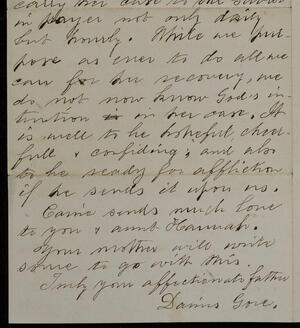 carry her case to our Savior
in prayer not only daily
but hourly. While we pur-
pose as ever to do all we
can for her recovery, we
do not now know God's in-
tention in her case. It
is well to be hopeful, cheer-
full & confiding; and also
to be ready for affliction
if he sends it upon us.
Carrie sends much love
to you & aunt Hannah.
Your mother will write
some to go with this.
Truly your affectionate father
Darius Gore.